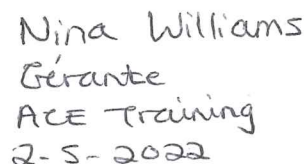 Nina Williams
Gérante
ACE Training
2-5-2022